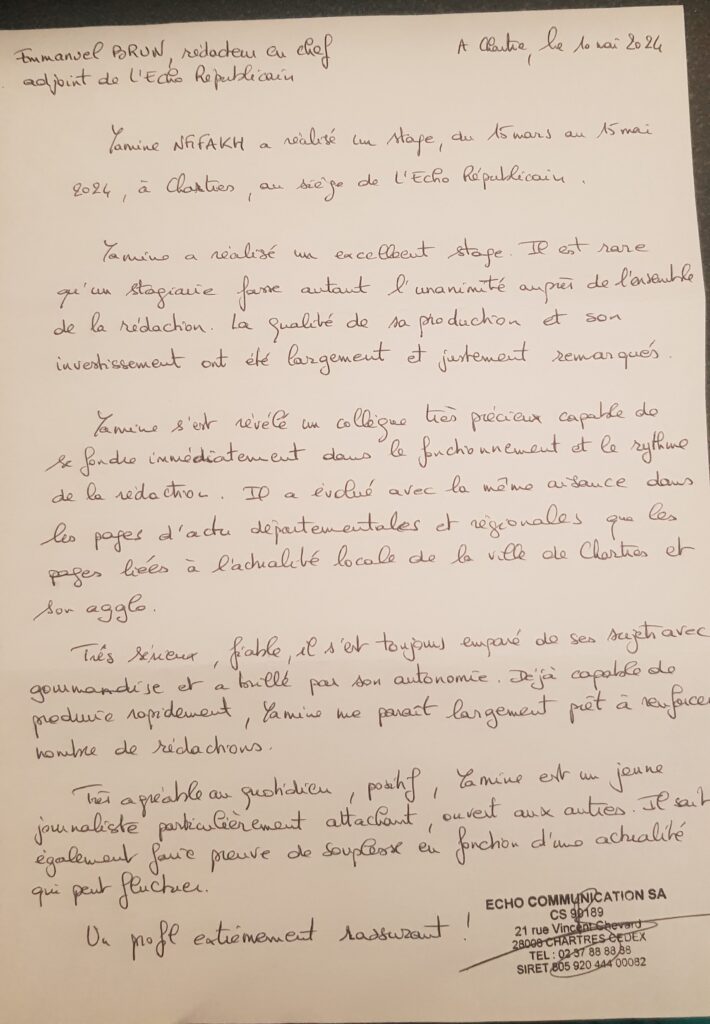 Emmanuel BRUN, rédacteur en chef
adjoint de L'Echo Républicain
A Chartres, le 10 mai 2024
Yamine NFIFAKH a réalisé un stage, du 15 mars au 15 mai
2024, à Chartres, au siège de L'Echo Républicain.
Yamine a réalisé un excellent stage. Il est rare
qu'un stagiaire fasse autant l'unanimité auprès de l'ensemble
de la rédaction. La qualité de sa production et son
investissement ont été largement et justement remarqués.
Yamine s'est révélé un collègue très précieux capable de
se fondre immédiatement dans le fonctionnement et le rythme
de la rédaction. Il a évolué avec la même aisance dans
les pages d'actu départementales et régionales que les
pages liées à l'actualité locale de la ville de Chartres et
son agglo.
Très sérieux, fiable, il s'est toujours emparé de ses sujets avec
gourmandise et a brillé par son autonomie. Déjà capable de
produire rapidement, Yamine me paraît largement prêt à renforcer
nombre de rédactions.
Très agréable au quotidien, positif, Yamine est un jeune
journaliste particulièrement attachant, ouvert aux autres. Il sait
également faire preuve de souplesse en fonction d'une actualité
qui peut fluctuer.
Un profil extrêmement rassurant !
ECHO COMMUNICATION SA
CS 90189
21 rue Vincent Chevard
28008 CHARTRES CEDEX
TEL : 02 37 88 88 88
SIRET 805 920 444 00082